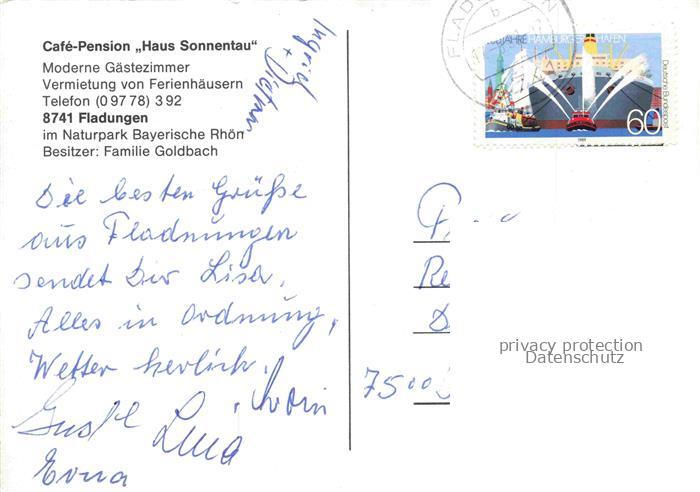 Café-Pension „Haus Sonnentau"
Moderne Gästezimmer
Vermietung von Ferienhäusern
Telefon (0 97 78) 3 92
8741 Fladungen
im Naturpark Bayerische Rhön
Besitzer: Familie Goldbach
Ingrid
+ Dietmar
Die besten Grüße
aus Fladnungen
sendet Dir Lisa,
Alles in Ordnung,
Wetter herlich.
Gustl Lina
Erna
JAHRE HAMBURGER HAFEN
Deutsche Bundespost
60
1989
FLAD
b
Re
D
7500
privacy protection
Datenschutz